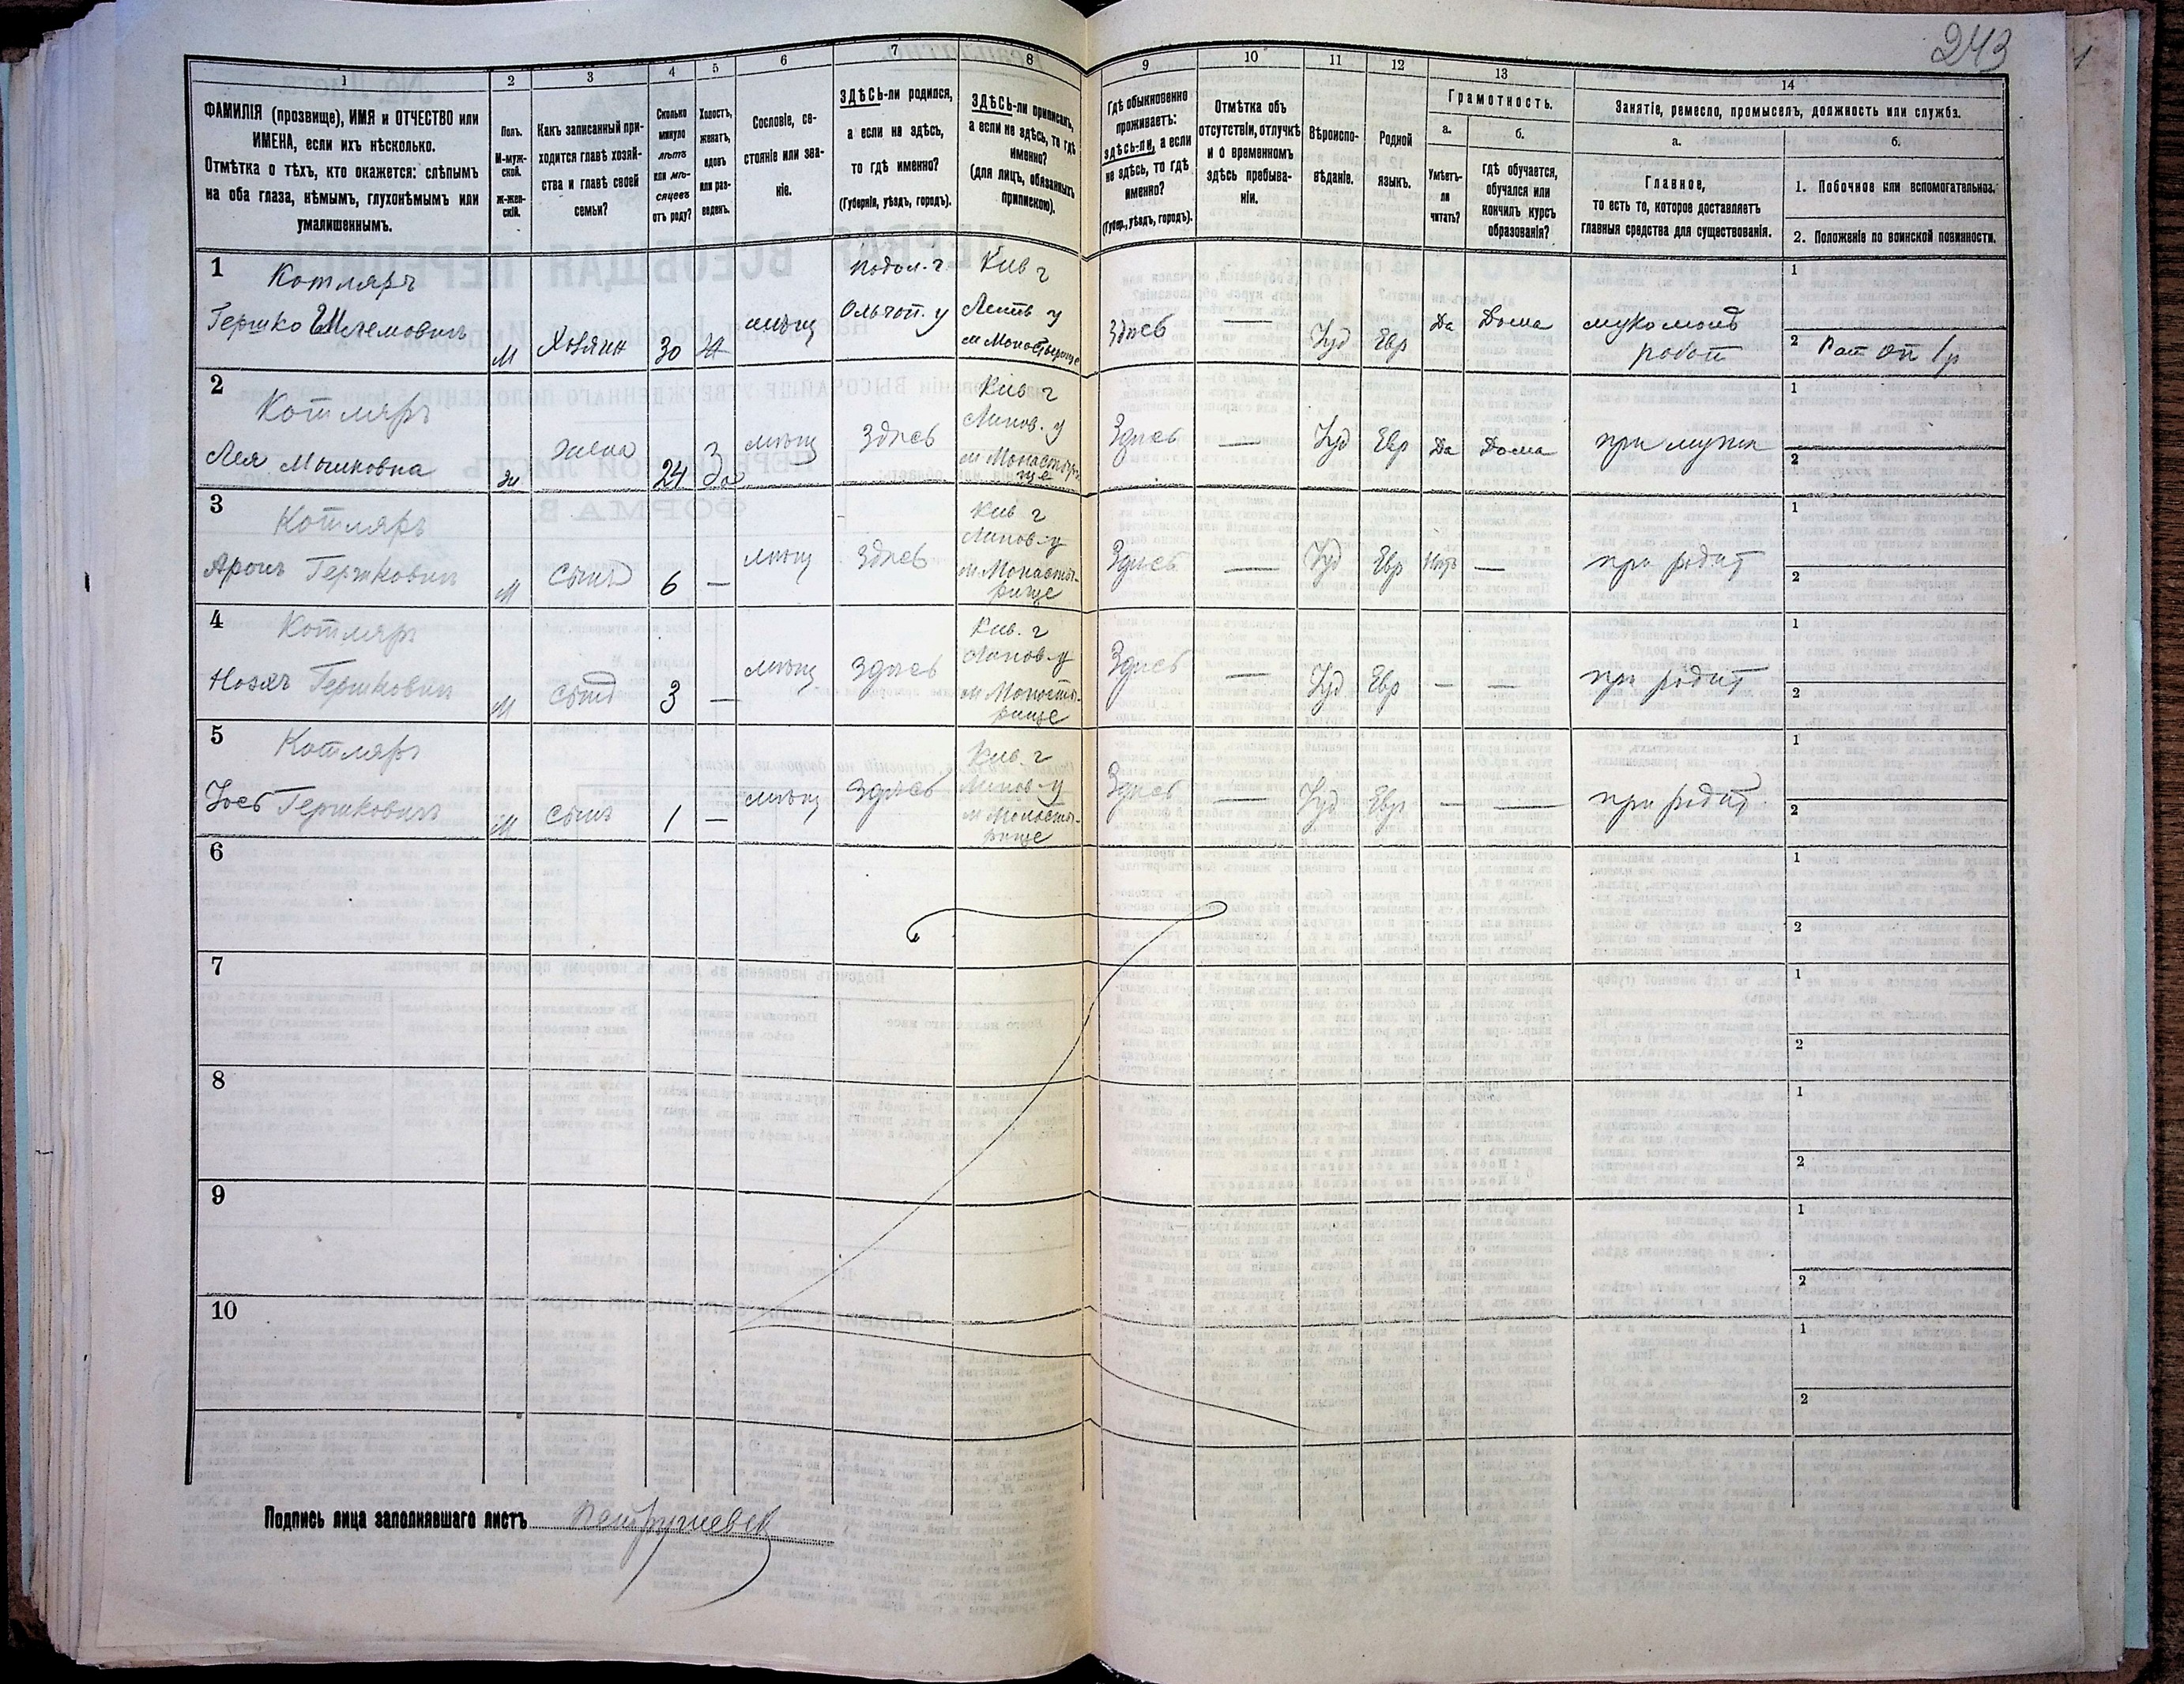 243
1
ФАМИЛІЯ (прозвище), ИМЯ и ОТЧЕСТВО или
ИМЕНА, если ихъ нѣсколько.
Отмѣтка о тѣхъ, кто окажется: слѣпымъ
на оба глаза, нѣмымъ, глухонѣмымъ или
умалишеннымъ.
2
Полъ.
М-муж-
ской.
ж-жен-
скій.
3
Какъ записанный при-
ходится главѣ хозяй-
ства и главѣ своей
семьи?
4
Сколько
минуло
лѣтъ
или мѣ-
сяцевъ
отъ роду?
5
Холостъ,
женатъ,
вдовъ
или раз-
веденъ.
6
Сословіе, со-
стояніе или зва-
ніе.
7
ЗДѢСЬ-ли родился,
а если не здѣсь,
то гдѣ именно?
(Губернія, уѣздъ, городъ).
8
ЗДѢСЬ-ли приписанъ,
а если не здѣсь, то гдѣ
именно?
(для лицъ, обязанныхъ
припискою).
9
Гдѣ обыкновенно
проживаетъ:
здѣсь-ли, а если
не здѣсь, то гдѣ
именно?
(Губер., уѣздъ, городъ).
10
Отмѣтка объ
отсутствіи, отлучкѣ
и о временномъ
здѣсь пребыва-
ніи.
11
Вѣроиспо-
вѣданіе.
12
Родной
языкъ.
13
Грамотность.
а.
Умѣетъ-
ли
читать?
б.
гдѣ обучается,
обучался или
кончилъ курсъ
образованія?
14
Занятіе, ремесло, промыселъ, должность или служба.
а.
Главное,
то есть то, которое доставляетъ
главныя средства для существованія.
б.
1. Побочное или вспомогательное.
2. Положеніе по воинской повинности.
1
Котляръ
Гершко Шлемовичъ
М
Хозяинъ
30
мѣщ
Подол. г
Ольгоп. у
Кив г
Липов у
м Монастырище
Здѣсь
—
Іуд
Евр
Да
Дома
мукомонъ
работ
1
2 Рат оп 1 р
2
Котляръ
Лея Мошковна
ж
жена
24
З
мѣщ
Здѣсь
Кив г
Липов. у
м Монастыри-
ще
Здѣсь
—
Іуд
Евр
Да
Дома
при мужѣ
1
2
3
Котляръ
Аронъ Гершковичъ
М
Сынъ
6
—
мѣщ
Здѣсь
Кив г
Липов-у
м. Монасты-
рище
Здѣсь
—
Іуд
Евр
Нѣтъ
—
при родит
1
2
4
Котляръ
Гершковичъ
М
Сынъ
3
—
мѣщ
Здѣсь
Кив. г
Липов-у
м Монасты-
рище
Здѣсь
—
Іуд
Евр
—
—
при родит
1
2
5
Котляръ
Іось Гершковичъ
М
Сынъ
1
—
мѣщ
Здѣсь
Кив. г
Липов-у
м Монасты-
рище
Здѣсь
—
Іуд
Евр
—
—
при родит
1
2
6
1
2
7
1
2
8
1
2
9
1
2
10
1
2
Подпись лица заполнявшаго листъ